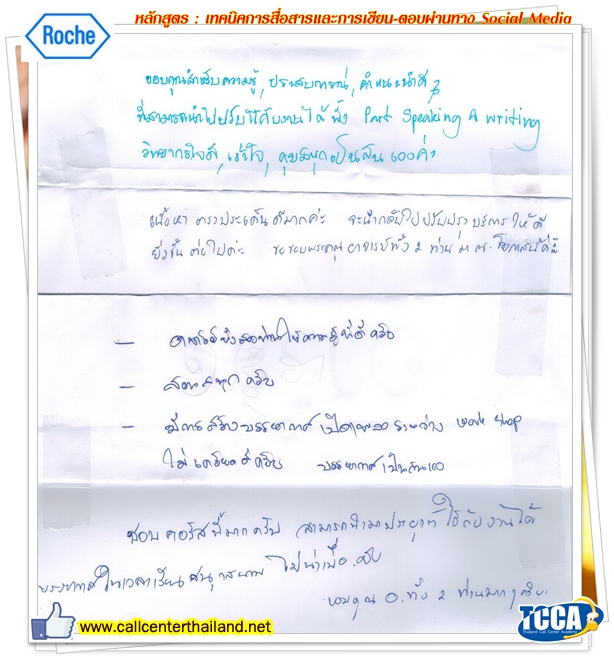 หลักสูตร : เทคนิคการสื่อสารและการเขียน-ตอบผ่านทาง Social Media
Roche
ขอบคุณสำหรับความรู้, ประสบการณ์, คำแนะนำดีๆ
ที่สามารถนำไปปรับใช้กับงานได้ทั้ง Part Speaking & writing
วิทยากรใจดี, เข้าใจ, คุยสนุกเป็นกันเองค่ะ
เนื้อหา ตรงประเด็นดีมากค่ะ จะนำกลับไปปรับปรุงบริการให้ดี
ยิ่งขึ้นต่อไปค่ะ ขอขอบพระคุณอาจารย์ทั้ง 2 ท่าน ณ โอกาสนี้
— อาจารย์ทั้งสองท่านให้ความรู้ที่ดีครับ
— สอนสนุกครับ
— มีการสร้างบรรยากาศ เปิดเพลงระหว่าง work shop
ไม่เครียดดีครับ บรรยากาศเป็นกันเอง
ชอบคอร์สนี้มากครับ สามารถนำมาประยุกต์ใช้กับงานได้
บรรยากาศในเวลาเรียนสนุกสนาน ไม่น่าเบื่อครับ
ขอบคุณ อ. ทั้ง 2 ท่านมากๆครับ
www.callcenterthailand.net
TCCA
Thailand Call Center Academy